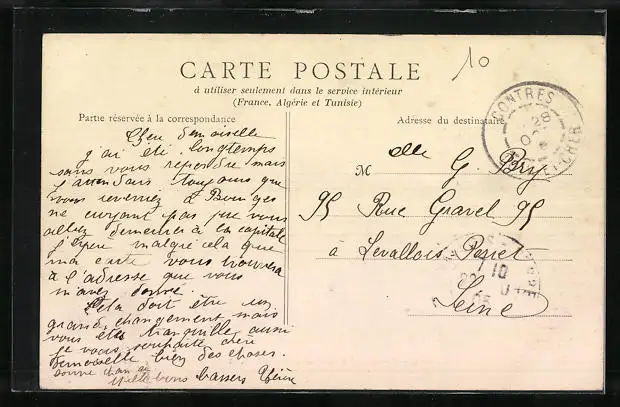 10
CARTE POSTALE
à utiliser seulement dans le service intérieur
(France, Algérie et Tunisie)
Partie réservée à la correspondance
Adresse du destinataire
CONTRES
28
CHER
Cher demoiselle
j'ai été longtemps
sans vous repondre mais
j'atendais toujours que
vous reveniez à Bourges
ne croyant pas que vous
alliez demeurer à la capitale
j'espere malgré cela que
ma carte vous trouvera
à l'adresse que vous
m'avez donné.
Cela doit être un
grand changement mais
vous êtes tranquille aussi
je vous souhaite chere
demoiselle bien des choses.
bons baisers
Melle G. Bry
95 Rue Gravel 95
à Levallois-Perret
Seine
10